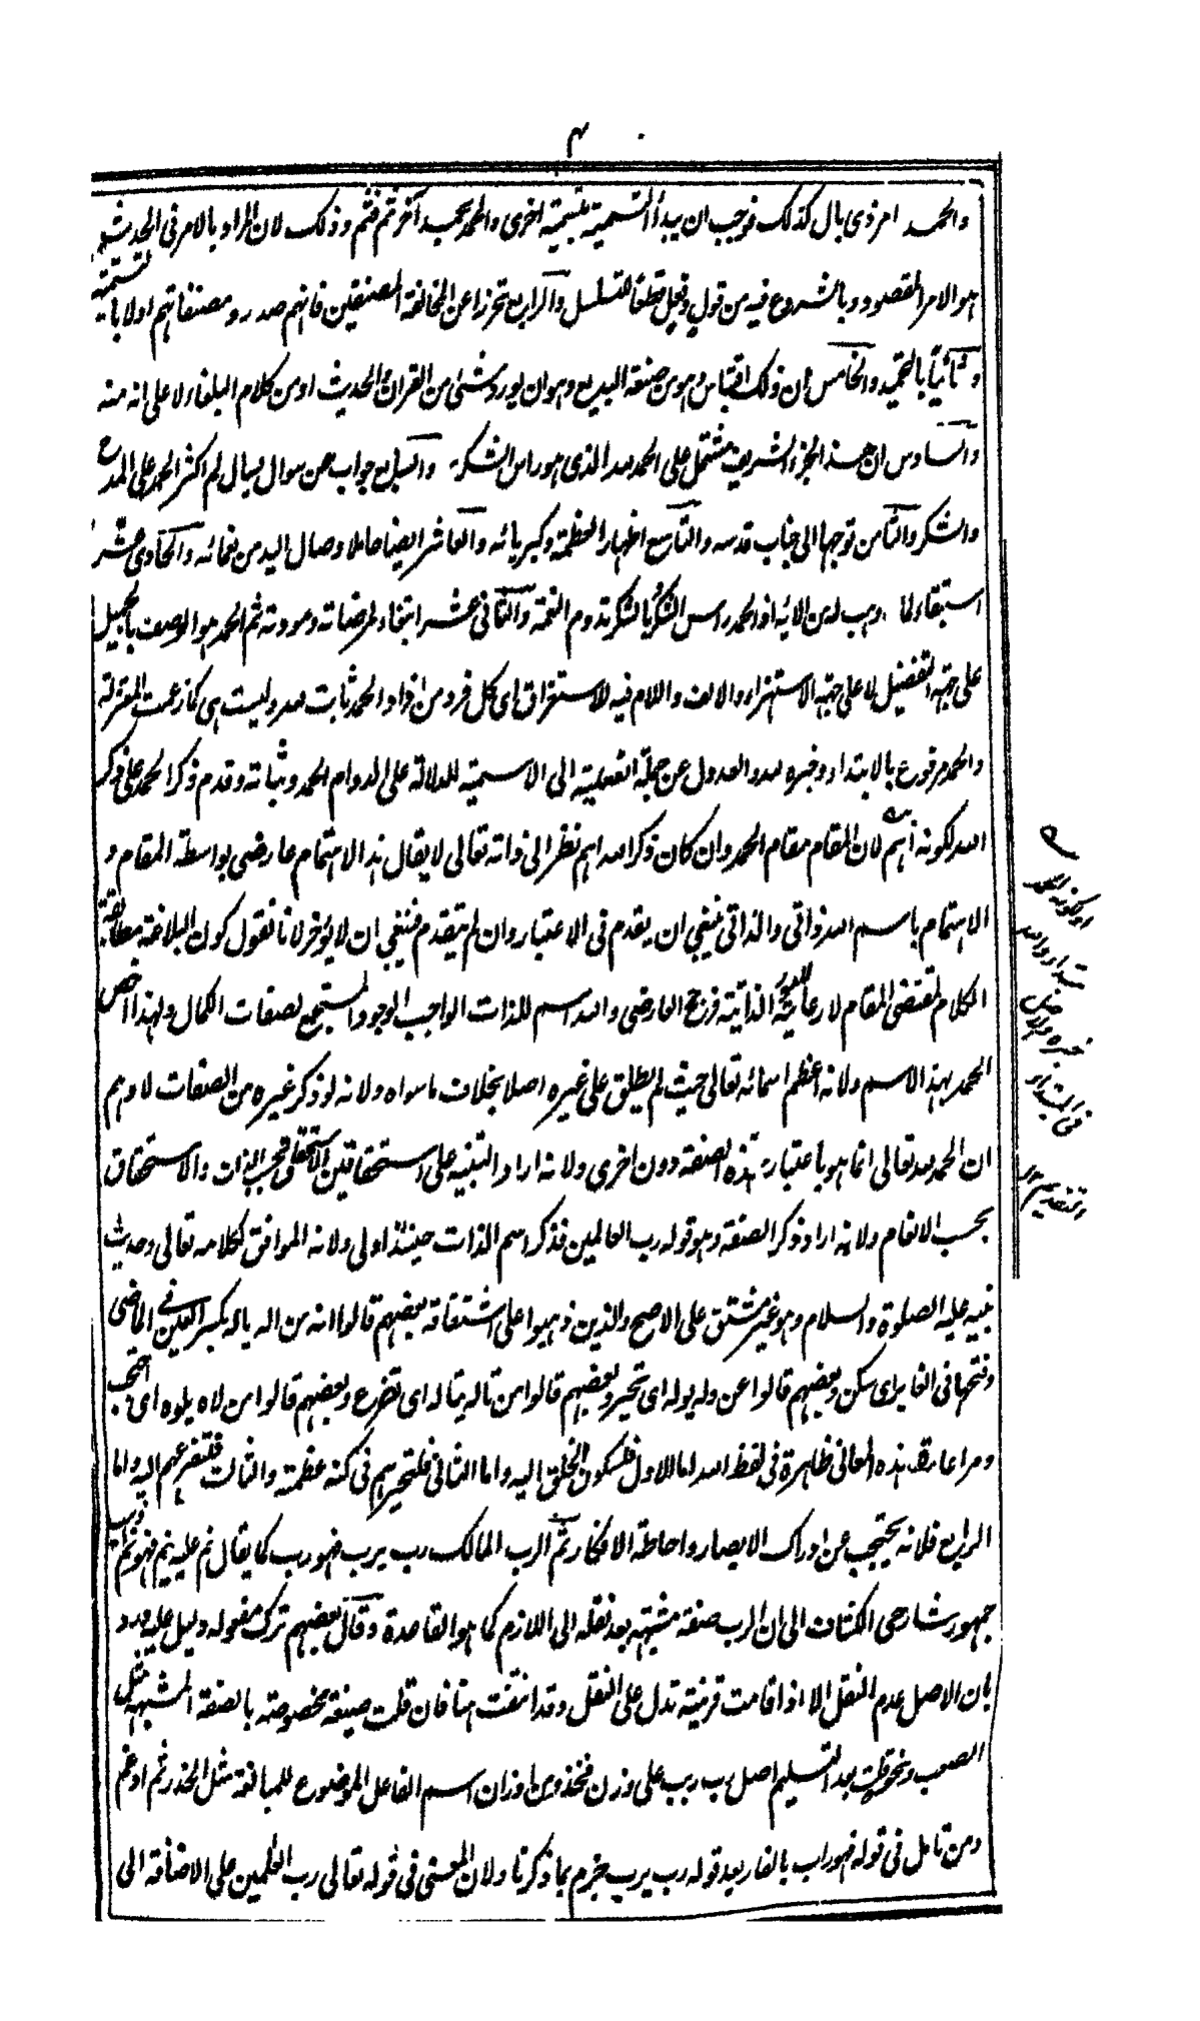 ۴
والحمد امر ذی بال کذلک فوجب ان یبدأ التسمیة بتسمیة اخری والحمد بحمد آخر ثم فثم وذلک لان المراد بالامر فی الحدیث
هو الامر المقصود وبالشروع فیه من قول وفعل قطعًا للتسلسل والرابع تحرزا عن المخالفة المصنفین فانهم صدروا مصنفاتهم اولا بالتسمیة
وثانیًا بالتحمید والخامس ان ذلک اقتباس وهو من صنعة البدیع وهو ان یورد شئ من القرآن والحدیث او من کلام البلغاء لا علی انه منه
والسادس ان هذا الجزء الشریف مشتمل علی الحمد لله الذی هو راس الشکر والسابع جواب عن سوال یسال لم اکثر الحمد علی المدح
والشکر والثامن توجها الی جناب قدسه والتاسع اظهار العظمة وکبریائه والعاشر ایضا حاملا وصال الیه من نعمائه والحادی عشر
استبقاء لما وهب لدن الایه اذ الحمد راس الشکر وبالشکر تدوم النعمة والثانی عشر ابتغاء لمرضاته ومودته ثم الحمد هو الوصف بالجمیل
علی جهة التفضیل لا علی جهة الاستهزاء والالف واللام فیه للاستغراق ای کل فرد من افراد الحمد ثابت لله ولیست هی کما زعمت المعتزلة
والحمد مرفوع بالابتداء وخبره لله والعدول عن جملة الفعلیة الی الاسمیة للدلالة علی الدوام الحمد وثباته وقدم ذکر الحمد علی ذکر
الله لکونه اهم لان المقام مقام الحمد وان کان ذکر الله اهم نظرا الی ذاته تعالی لا یقال هذا الاهتمام عارضی بواسطة المقام و
الاهتمام باسم الله ذاتی والذاتی ینبغی ان یقدم فی الاعتبار وان لم یتقدم فینبغی ان لا یؤخر لانا نقول کون البلاغة مطابقة
الکلام لمقتضی المقام لا رعایة الذاتیة فرجح العارضی والله اسم للذات الواجب الوجود المستجمع لصفات الکمال ولهذا اختص
الحمد بهذا الاسم ولانه اعظم اسمائه تعالی حیث لم یطلق علی غیره اصلا بخلاف ما سواه ولانه لو ذکر غیره من الصفات لاوهم
ان الحمد لله تعالی انما هو باعتبار هذه الصفة دون اخری ولانه اراد التنبیه علی استحقاقین الاستحقاق بحسب الذات والاستحقاق
بحسب الانعام ولانه اراد ذکر الصفة وهو قوله رب العالمین فذکر اسم الذات حینئذ اولی ولانه الموافق لکلامه تعالی وحدیث
نبیه علیه الصلوة والسلام وهو غیر مشتق علی الاصح والذین ذهبوا علی اشتقاقه بعضهم قالوا انه من اله یاله بکسر العین فی الماضی
وفتحها فی الغابر ای سکن وبعضهم قالوا عن وله یوله ای تحیر وبعضهم قالوا من تاله یتاله ای تضرع وبعضهم قالوا من لاه یلوه ای احتجب
ومراعاة هذه المعانی ظاهرة فی لفظ الله اما الاول فلسکون الخلق الیه واما الثانی فلتحیرهم فی کنه عظمته والثالث فلتضرعهم الیه واما
الرابع فلانه یحتجب عن ادراک الابصار واحاطة الافکار ثم الرب المالک رب یرب فهو رب کما یقال نم علیه ینم فهو نم
جمهور شارحی الکشاف الی ان الرب صفة مشبهة بعد نقله الی اللازم کما هو القاعدة وقال بعضهم ترک مفعوله دلیل علیه
بان الاصل عدم النقل الا اذا قامت قرینة تدل علی النقل وقد انتفت هنا فان قلت صیغة مخصوصة بالصفة المشبهة مثل
الصعب ونحو قلت بعد التسلیم اصل رب ربب علی وزن فخذ ومن اوزان اسم الفاعل الموضوع للمبالغة مثل الحذر ثم ادغم
ومن تامل فی قوله فهو راب بالفاء بعد قوله رب یرب جزم بما ذکرنا ولان المعنی فی قوله تعالی رب العلمین علی الاضافة الی